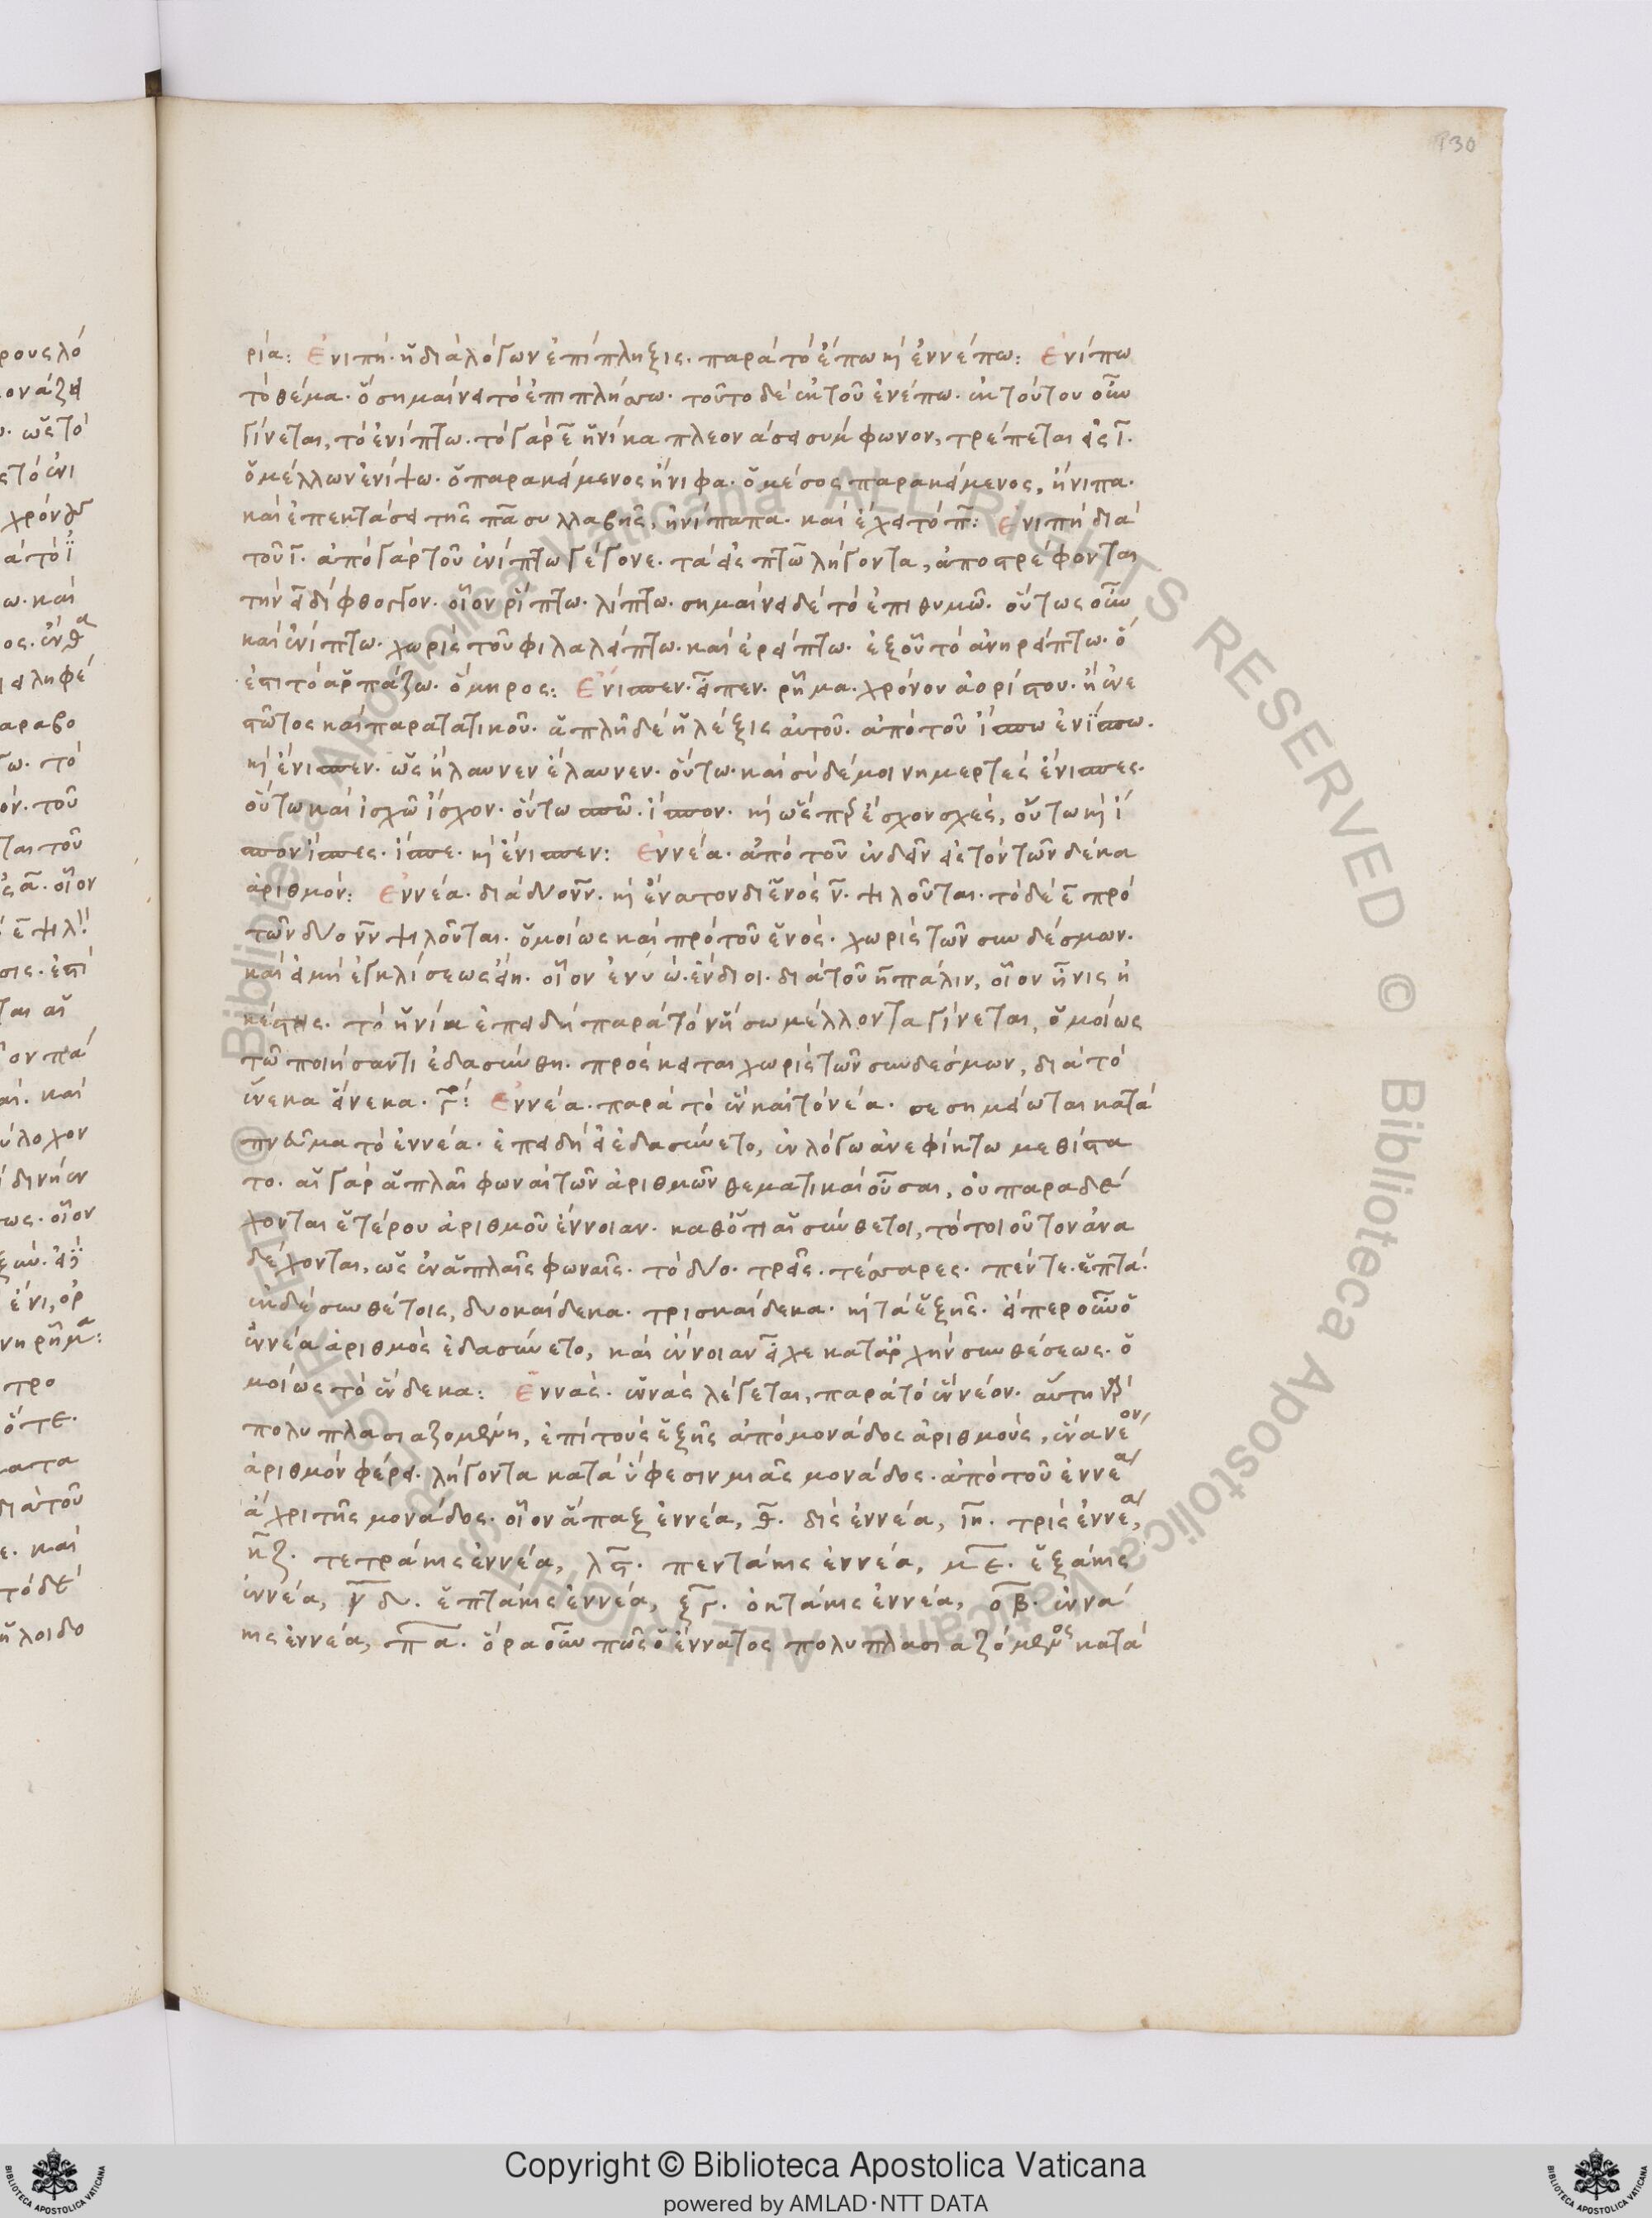 130
ρία: Ἐνιπή· ἡ διὰ λόγων ἐπίπληξις· παρὰ τὸ ἔπω κὶ ἐννέπω: Ἐνίπω
τὸ θέμα· ὃ σημαίνει τὸ ἐπιπλήσσω· τοῦτο δὲ ἐκ τοῦ ἐνέπω· ἐκ τούτου οὖν
γίνεται, τὸ ἐνίπτω· τὸ γὰρ ε̅ ἡνίκα πλεονάσει σύμφωνον, τρέπεται εἰς ι̅·
ὁ μέλλων ἐνίψω· ὁ παρακείμενος ἤνιφα· ὁ μέσος παρακείμενος, ἤνιπα·
καὶ ἐπεκτάσει τῆς πα̅ συλλαβῆς, ἠνίπαπα· καὶ ἔχει τὸ π̅: Ἐνιπὴ διὰ
τοῦ ι̅· ἀπὸ γὰρ τοῦ ἐνίπτω γέγονε· τὰ εἰς πτω̅ λήγοντα, ἀποστρέφονται
τὴν ει̅ δίφθογγον· οἷον ῥίπτω· λίπτω· σημαίνει δὲ τὸ ἐπιθυμῶ· οὕτως οὖν
καὶ ἐνίπτω· χωρὶς τοῦ φιλαλείπτω· καὶ ἐρείπτω· ἐξ οὗ τὸ ἀνηρείπτω· ὅ
ἐστι τὸ ἁρπάζω· ὅμηρος: Ἐνισπεν· εἶπεν· ῥῆμα· χρόνου ἀορίστου· ἢ ἐνε
στῶτος καὶ παρατατικοῦ· ἁπλῆ δὲ ἡ λέξις αὐτοῦ· ἀπὸ τοῦ ἴσπω ἐνίσπω·
κὶ ἔνισπεν· ὡς ἤλαυνεν ἔλαυνεν· οὕτω· καὶ σὺ δέ μοι νημερτὲς ἔνισπες·
οὕτω καὶ ἰσχῶ ἴσχον· οὕτω σπῶ· ἴσπον· κὶ ὡς πρ ἔσχον σχὲς, οὕτω κὶ ἴ
σπον ἴσπες· ἴσπε· κὶ ἔνισπεν: Ἐννέα· ἀπὸ τοῦ ἐνδεῖν εἰς τὸν τῶν δέκα
ἀριθμόν: Ἐννέα· διὰ δύο νν̅· κὶ ἔνατον δι ἑνὸς ν̅· ψιλοῦνται· τὸ δὲ ε̅ πρὸ
τῶν δύο νν̅ ψιλοῦνται· ὁμοίως καὶ πρὸ τοῦ ἑνός· χωρὶς τῶν συνδέσμων·
καὶ εἰ μὴ ἐγκλίσεως εἴη· οἷον ἐνυώ· ἔνδιοι· διὰ τοῦ η̅ πάλιν, οἷον ἦνις ἠ
κέστης· τὸ ἡνία ἐπειδὴ παρὰ τὸ νήσω μέλλοντα γίνεται, ὁμοίως
τῶ ποιήσαντι ἐδασύνθη· πρόσκειται χωρὶς τῶν συνδέσμων, διὰ τὸ
ἕνεκα εἵνεκα· Ἐννέα· παρὰ τὸ ἓν καὶ τὸ νέα· σεσημείωται κατὰ
πνεῦμα τὸ ἐννέα· ἐπειδὴ εἰ ἐδασύνετο, ἐν λόγω ἀνεφίκτω μεθίστα
το· αἱ γὰρ ἁπλαῖ φωναὶ τῶν ἀριθμῶν θεματικαὶ οὖσαι, οὐ παραδέ
χονται ἑτέρου ἀριθμοῦ ἔννοιαν· καθότι αἱ σύνθετοι, τὸ τοιοῦτον ἀνα
δέχονται, ὡς ἐν ἁπλαῖς φωναῖς· τὸ δύο· τρεῖς· τέσσαρες· πέντε· ἑπτά·
ἐν δὲ συνθέτοις, δυοκαίδεκα· τρισκαίδεκα· κὶ τὰ ἑξῆς· εἴπερ οὖν ὁ
ἐννέα ἀριθμὸς ἐδασύνετο, καὶ ἔννοιαν εἶχε κατ ἀρχὴν συνθέσεως· ὁ
μοίως τὸ ἕνδεκα: Ἐννάς· ἑνὰς λέγεται, παρὰ τὸ ἓν νέον· αὕτη γὰρ
πολυπλασιαζομένη, ἐπὶ τοὺς ἑξῆς ἀπὸ μονάδος ἀριθμοὺς, ἕνα νέον
ἀριθμὸν φέρει· λήγοντα κατὰ ὕφεσιν μιᾶς μονάδος· ἀπὸ τοῦ ἐννέα
ἄχρι τῆς μονάδος· οἷον ἅπαξ ἐννέα, θ̅· δὶς ἐννέα, ιη̅· τρὶς ἐννέα,
κζ̅· τετράκις ἐννέα, λϛ̅· πεντάκις ἐννέα, με̅· ἑξάκις
ἐννέα, νδ̅· ἑπτάκις ἐννέα, ξγ̅· ὀκτάκις ἐννέα, οβ̅· ἐννά
κις ἐννέα, πα̅· ὅρα οὖν πῶς ὁ ἔννατος πολυπλασιαζόμενος κατὰ
Copyright © Biblioteca Apostolica Vaticana
powered by AMLAD·NTT DATA